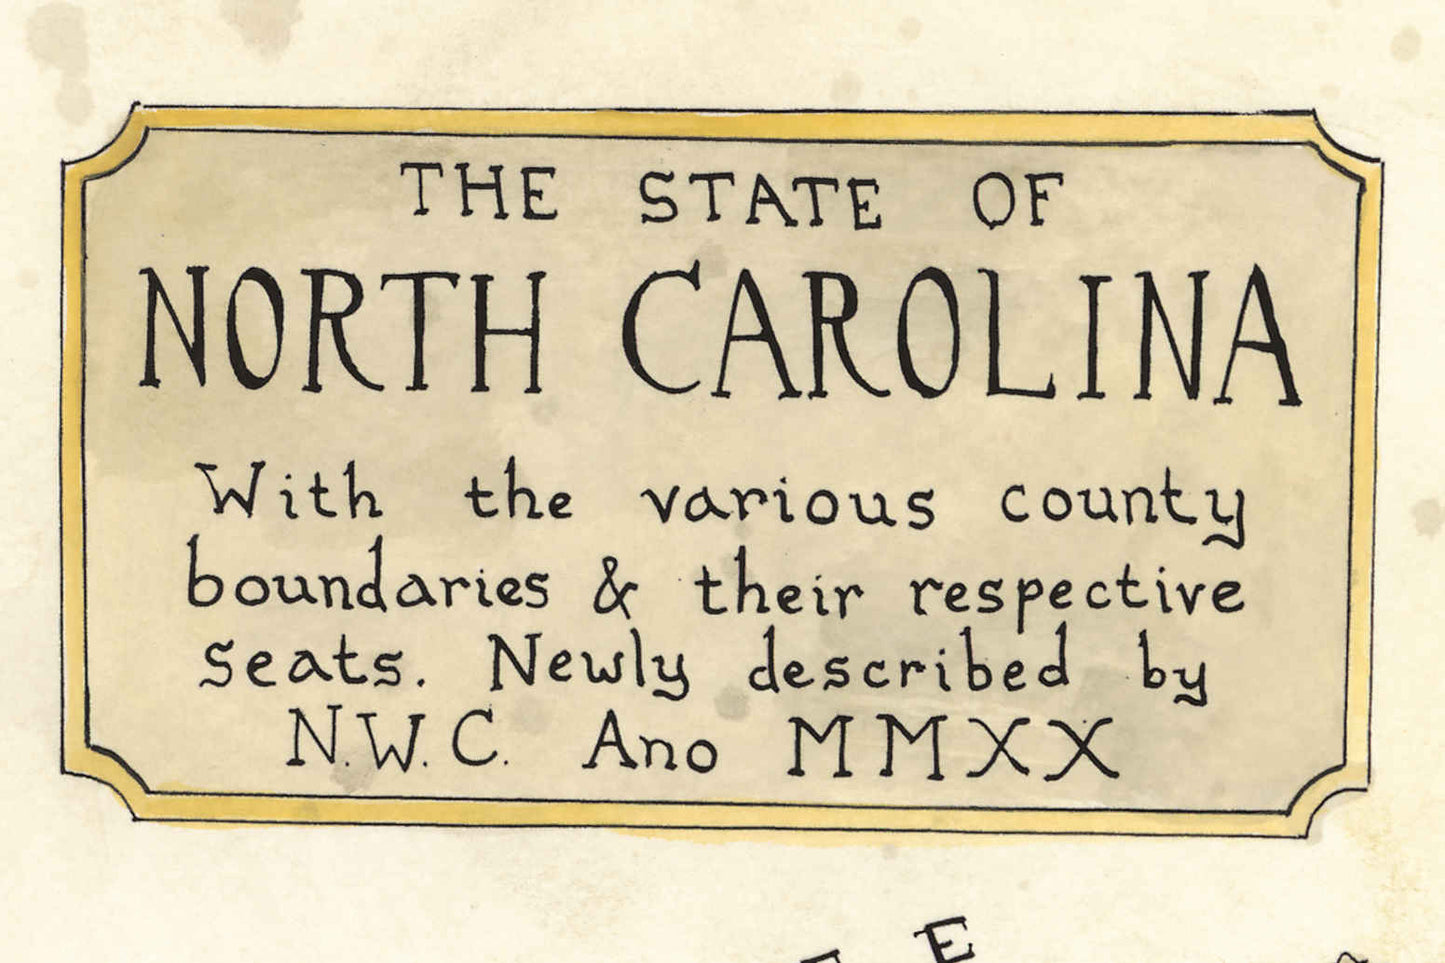 THE STATE OF
NORTH CAROLINA
With the various county
boundaries & their respective
seats. Newly described by
N.W.C. Ano MMXX
E